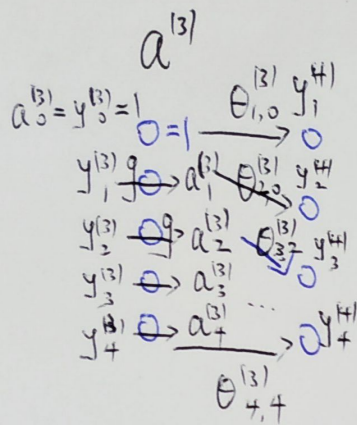 a^{(3)}
a_0^{(3)} = y_0^{(3)} = 1 θ_{1,0}^{(3)} y_1^{(4)}
0 = 1 → 0
y_1^{(3)} g 0 → a_1^{(3)} θ_{2,0}^{(3)} y_2^{(4)} 0
y_2^{(3)} 0 g → a_2^{(3)} θ_{3,2}^{(3)} y_3^{(4)} 0
y_3^{(3)} 0 → a_3^{(3)} ...
y_4^{(3)} 0 → a_4^{(3)} → 0 y_4^{(4)}
θ_{4,4}^{(3)}